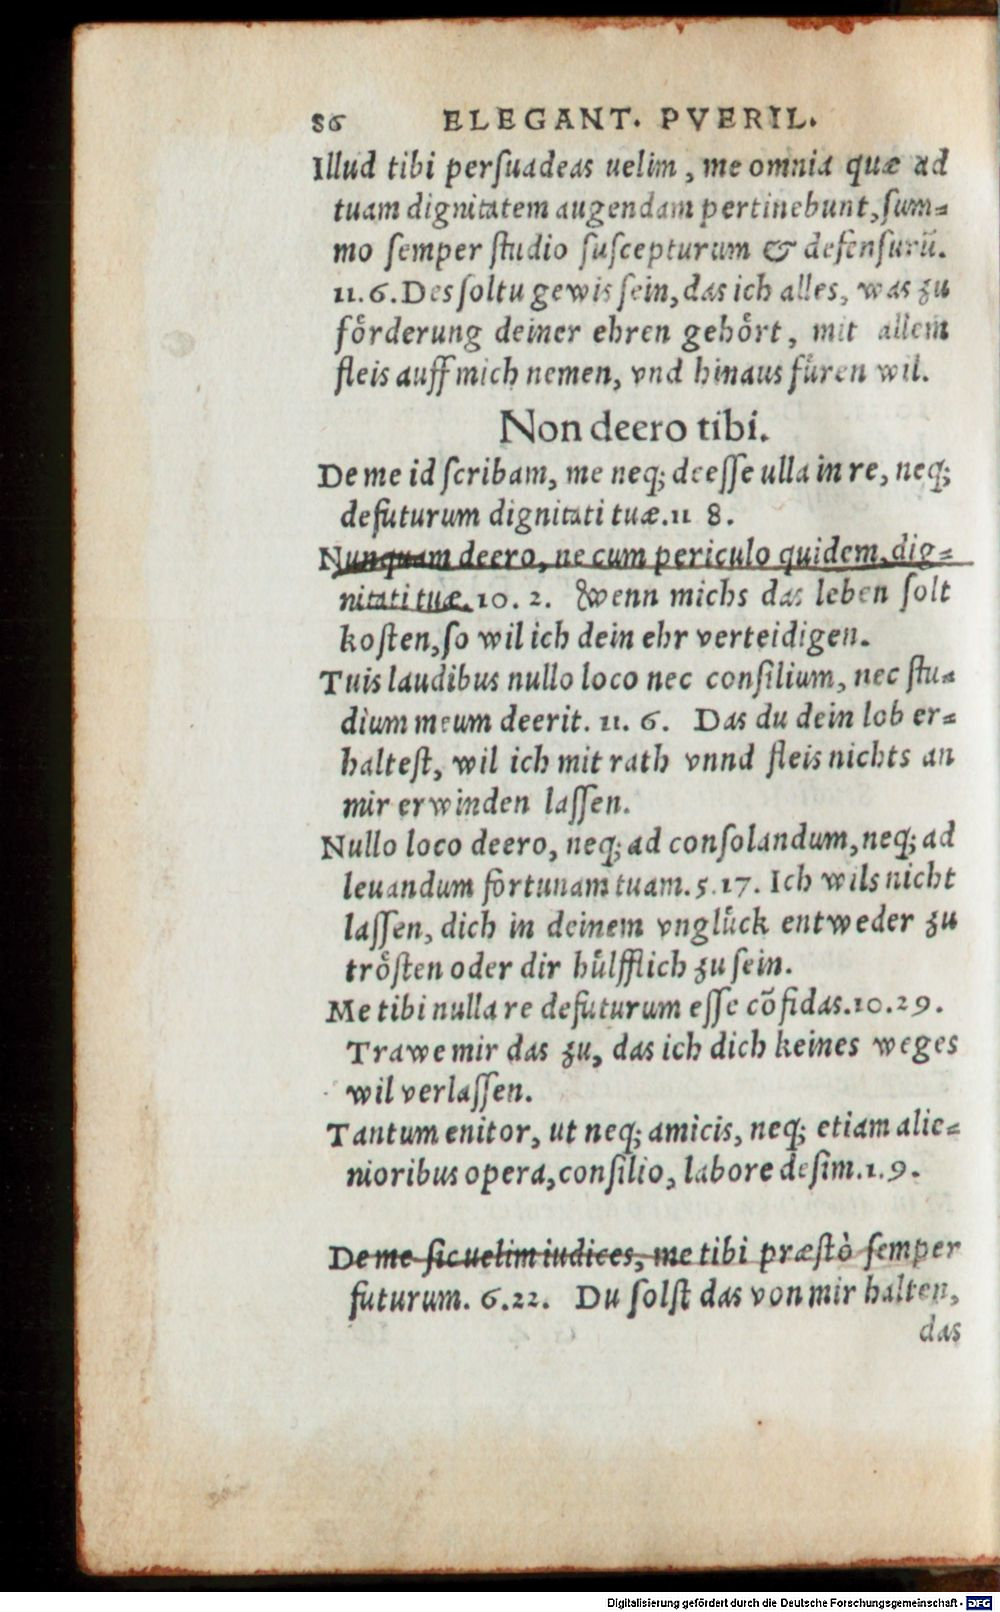 86 ELEGANT. PVERIL.
Illud tibi perſuadeas uelim, me omnia quæ ad
tuam dignitatem augendam pertinebunt, ſum=
mo ſemper ſtudio ſuſcepturum & defenſurū.
11.6. Des ſoltu gewis ſein, das ich alles, was zu
foͤrderung deiner ehren gehoͤrt, mit allem
fleis auff mich nemen, vnd hinaus fuͤren wil.
Non deero tibi.
De me id ſcribam, me neq; deeſſe ulla in re, neq;
defuturum dignitati tuæ. 11 8.
Nunquam deero, ne cum periculo quidem, dig=
nitati tuæ. 10. 2. Wenn michs das leben ſolt
koſten, ſo wil ich dein ehr verteidigen.
Tuis laudibus nullo loco nec conſilium, nec ſtu=
dium meum deerit. 11. 6. Das du dein lob er=
halteſt, wil ich mit rath vnnd fleis nichts an
mir erwinden laſſen.
Nullo loco deero, neq; ad conſolandum, neq; ad
leuandum fortunam tuam. 5.17. Ich wils nicht
laſſen, dich in deinem vngluͤck entweder zu
troͤſten oder dir huͤlfflich zu ſein.
Me tibi nulla re defuturum eſſe cōfidas. 10.29.
Trawe mir das zu, das ich dich keines weges
wil verlaſſen.
Tantum enitor, ut neq; amicis, neq; etiam alie=
nioribus opera, conſilio, labore deſim. 1.9.
De me ſic uelim iudices, me tibi præſtò ſemper
futurum. 6.22. Du ſolſt das von mir halten,
das
Digitalisierung gefördert durch die Deutsche Forschungsgemeinschaft - DFG